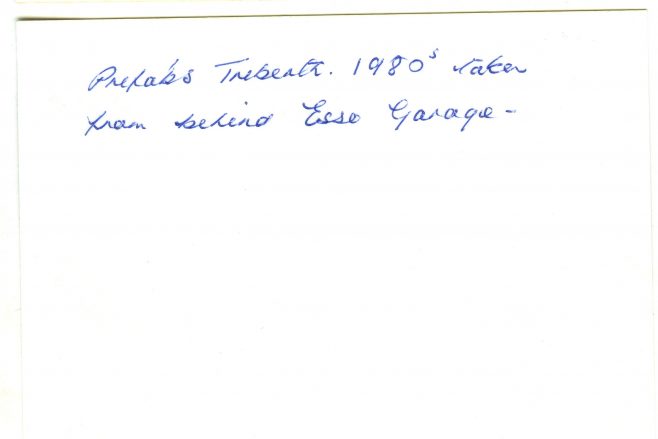 Prefabs Treberth. 1980s taken
from behind Esso Garage -